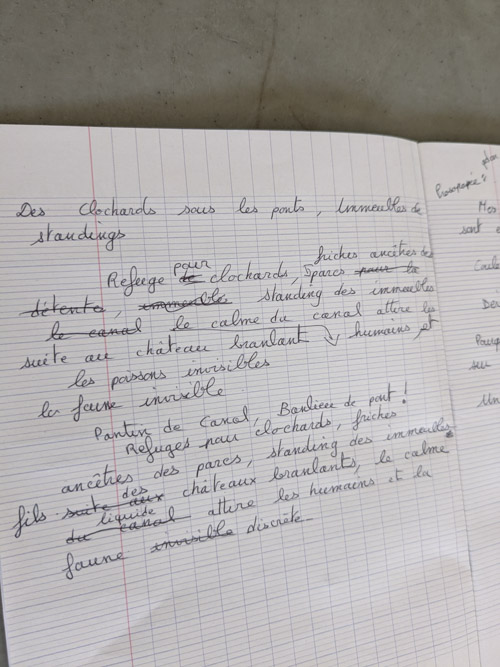 Des clochards sous les ponts, Immeubles de
standings
pour friches ancêtres des
Refuge de clochards, parcs pour la
détente, immeubles standing des immeubles
le canal le calme du canal attire les
suite au château branlant humains et
les poissons invisibles
la faune invisible
Pantin de Canal, Banlieue de pont !
Refuges pour clochards, friches
ancêtres des parcs, standing des immeubles
fils suite aux des châteaux branlants, le calme
liquide
du canal attire les humains et la
faune invisible discrète
Mes
sont